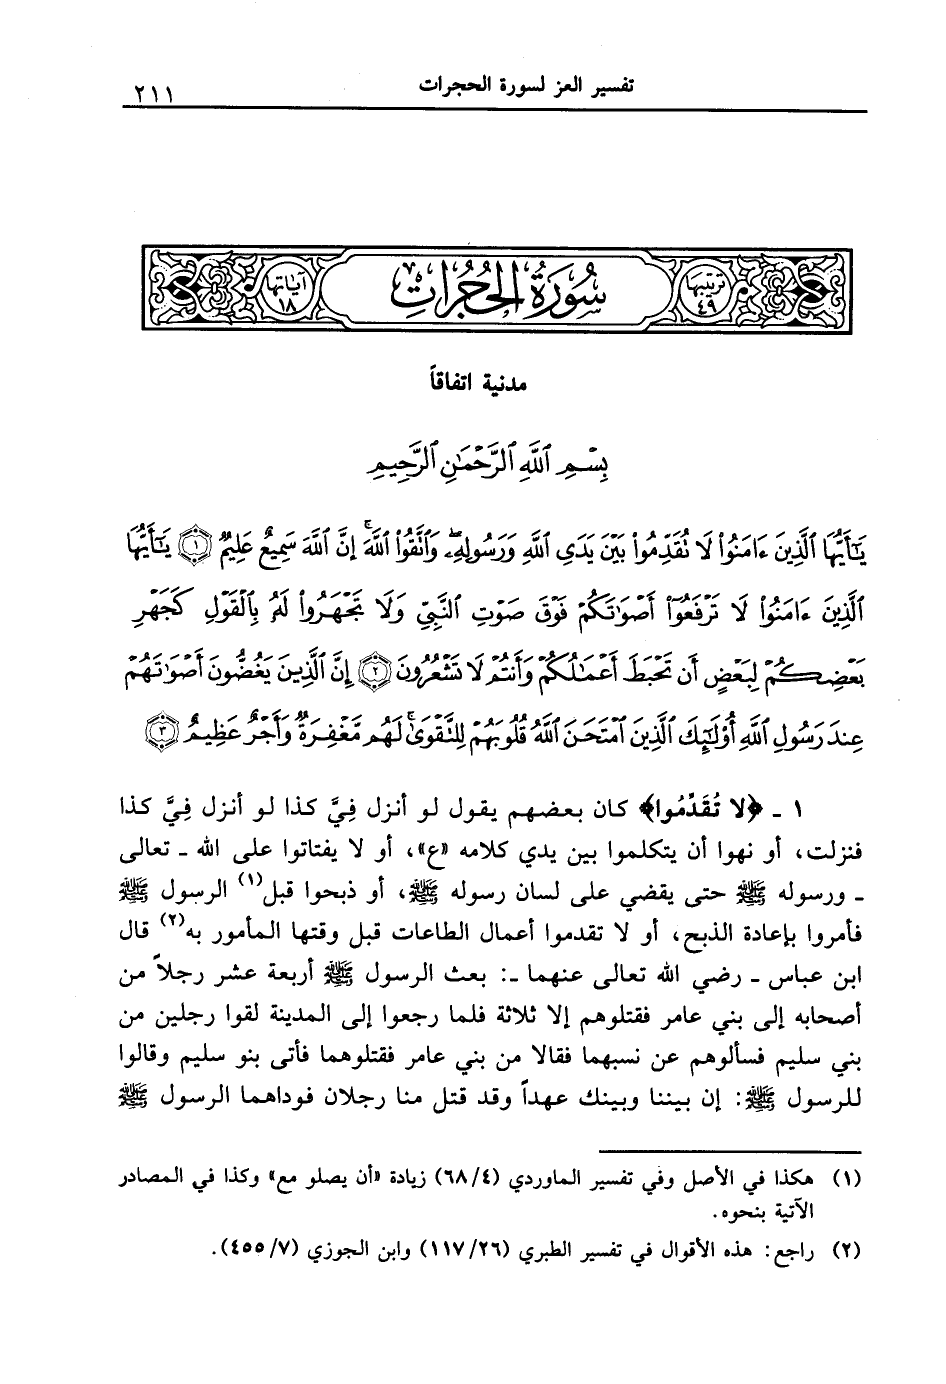 تفسير العز لسورة الحجرات
٢١١
ترتيبها ٤٩
سُورَةُ الحُجُرَاتِ
آياتها ١٨
مدنية اتفاقاً
بِسْمِ ٱللَّهِ ٱلرَّحْمَٰنِ ٱلرَّحِيمِ
يَٰٓأَيُّهَا ٱلَّذِينَ ءَامَنُوا۟ لَا تُقَدِّمُوا۟ بَيْنَ يَدَىِ ٱللَّهِ وَرَسُولِهِۦۖ وَٱتَّقُوا۟ ٱللَّهَۚ إِنَّ ٱللَّهَ سَمِيعٌ عَلِيمٌ ۝١ يَٰٓأَيُّهَا
ٱلَّذِينَ ءَامَنُوا۟ لَا تَرْفَعُوٓا۟ أَصْوَٰتَكُمْ فَوْقَ صَوْتِ ٱلنَّبِىِّ وَلَا تَجْهَرُوا۟ لَهُۥ بِٱلْقَوْلِ كَجَهْرِ
بَعْضِكُمْ لِبَعْضٍ أَن تَحْبَطَ أَعْمَٰلُكُمْ وَأَنتُمْ لَا تَشْعُرُونَ ۝٢ إِنَّ ٱلَّذِينَ يَغُضُّونَ أَصْوَٰتَهُمْ
عِندَ رَسُولِ ٱللَّهِ أُو۟لَٰٓئِكَ ٱلَّذِينَ ٱمْتَحَنَ ٱللَّهُ قُلُوبَهُمْ لِلتَّقْوَىٰۚ لَهُم مَّغْفِرَةٌ وَأَجْرٌ عَظِيمٌ ۝٣
١ ـ ﴿لا تُقَدِّمُوا﴾ كان بعضهم يقول لو أنزل فِيَّ كذا لو أنزل فِيَّ كذا
فنزلت، أو نهوا أن يتكلموا بين يدي كلامه «ع»، أو لا يفتاتوا على الله ـ تعالى
ـ ورسوله ﷺ حتى يقضي على لسان رسوله ﷺ، أو ذبحوا قبل(١) الرسول ﷺ
فأمروا بإعادة الذبح، أو لا تقدموا أعمال الطاعات قبل وقتها المأمور به(٢) قال
ابن عباس ـ رضي الله تعالى عنهما ـ: بعث الرسول ﷺ أربعة عشر رجلاً من
أصحابه إلى بني عامر فقتلوهم إلا ثلاثة فلما رجعوا إلى المدينة لقوا رجلين من
بني سليم فسألوهم عن نسبهما فقالا من بني عامر فقتلوهما فأتى بنو سليم وقالوا
للرسول ﷺ: إن بيننا وبينك عهداً وقد قتل منا رجلان فوداهما الرسول ﷺ
(١) هكذا في الأصل وفي تفسير الماوردي (٦٨/٤) زيادة «أن يصلو مع» وكذا في المصادر
الآتية بنحوه.
(٢) راجع: هذه الأقوال في تفسير الطبري (١١٧/٢٦) وابن الجوزي (٤٥٥/٧).